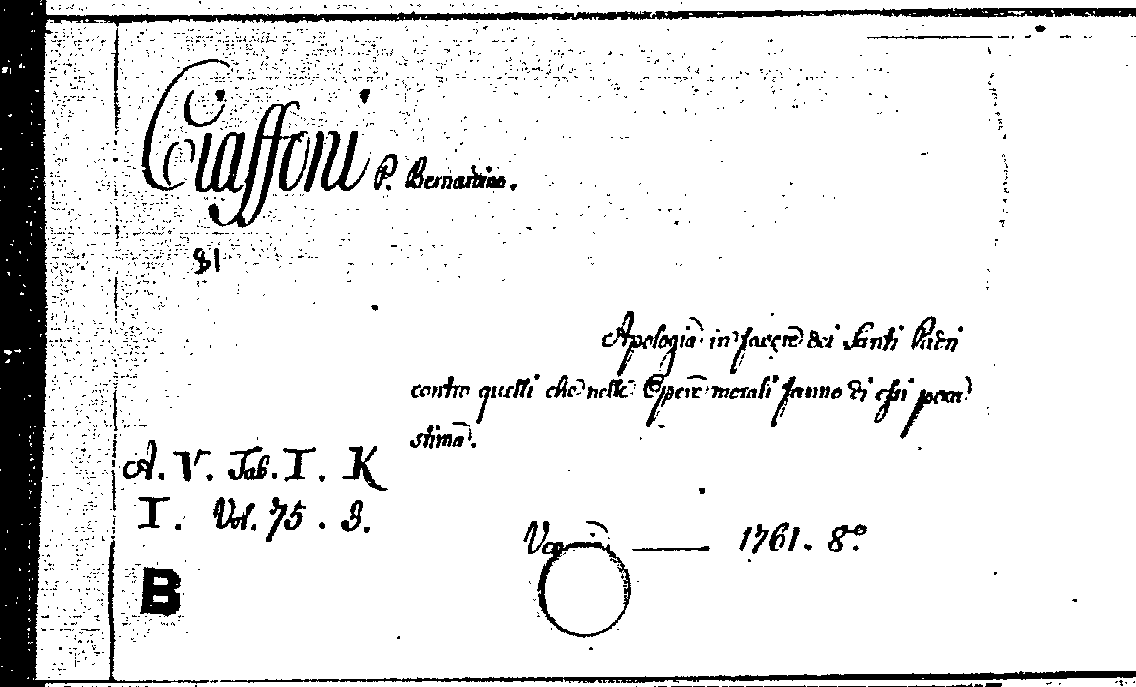 Ciaffoni P. Bernardino.
81
Apologia in favore dei Santi Padri
contro quelli che nelle Opere morali fanno di essi poca
stima.
A. V. Tab. I. K
I. Vol. 75. 3.
1761. 8º.
B